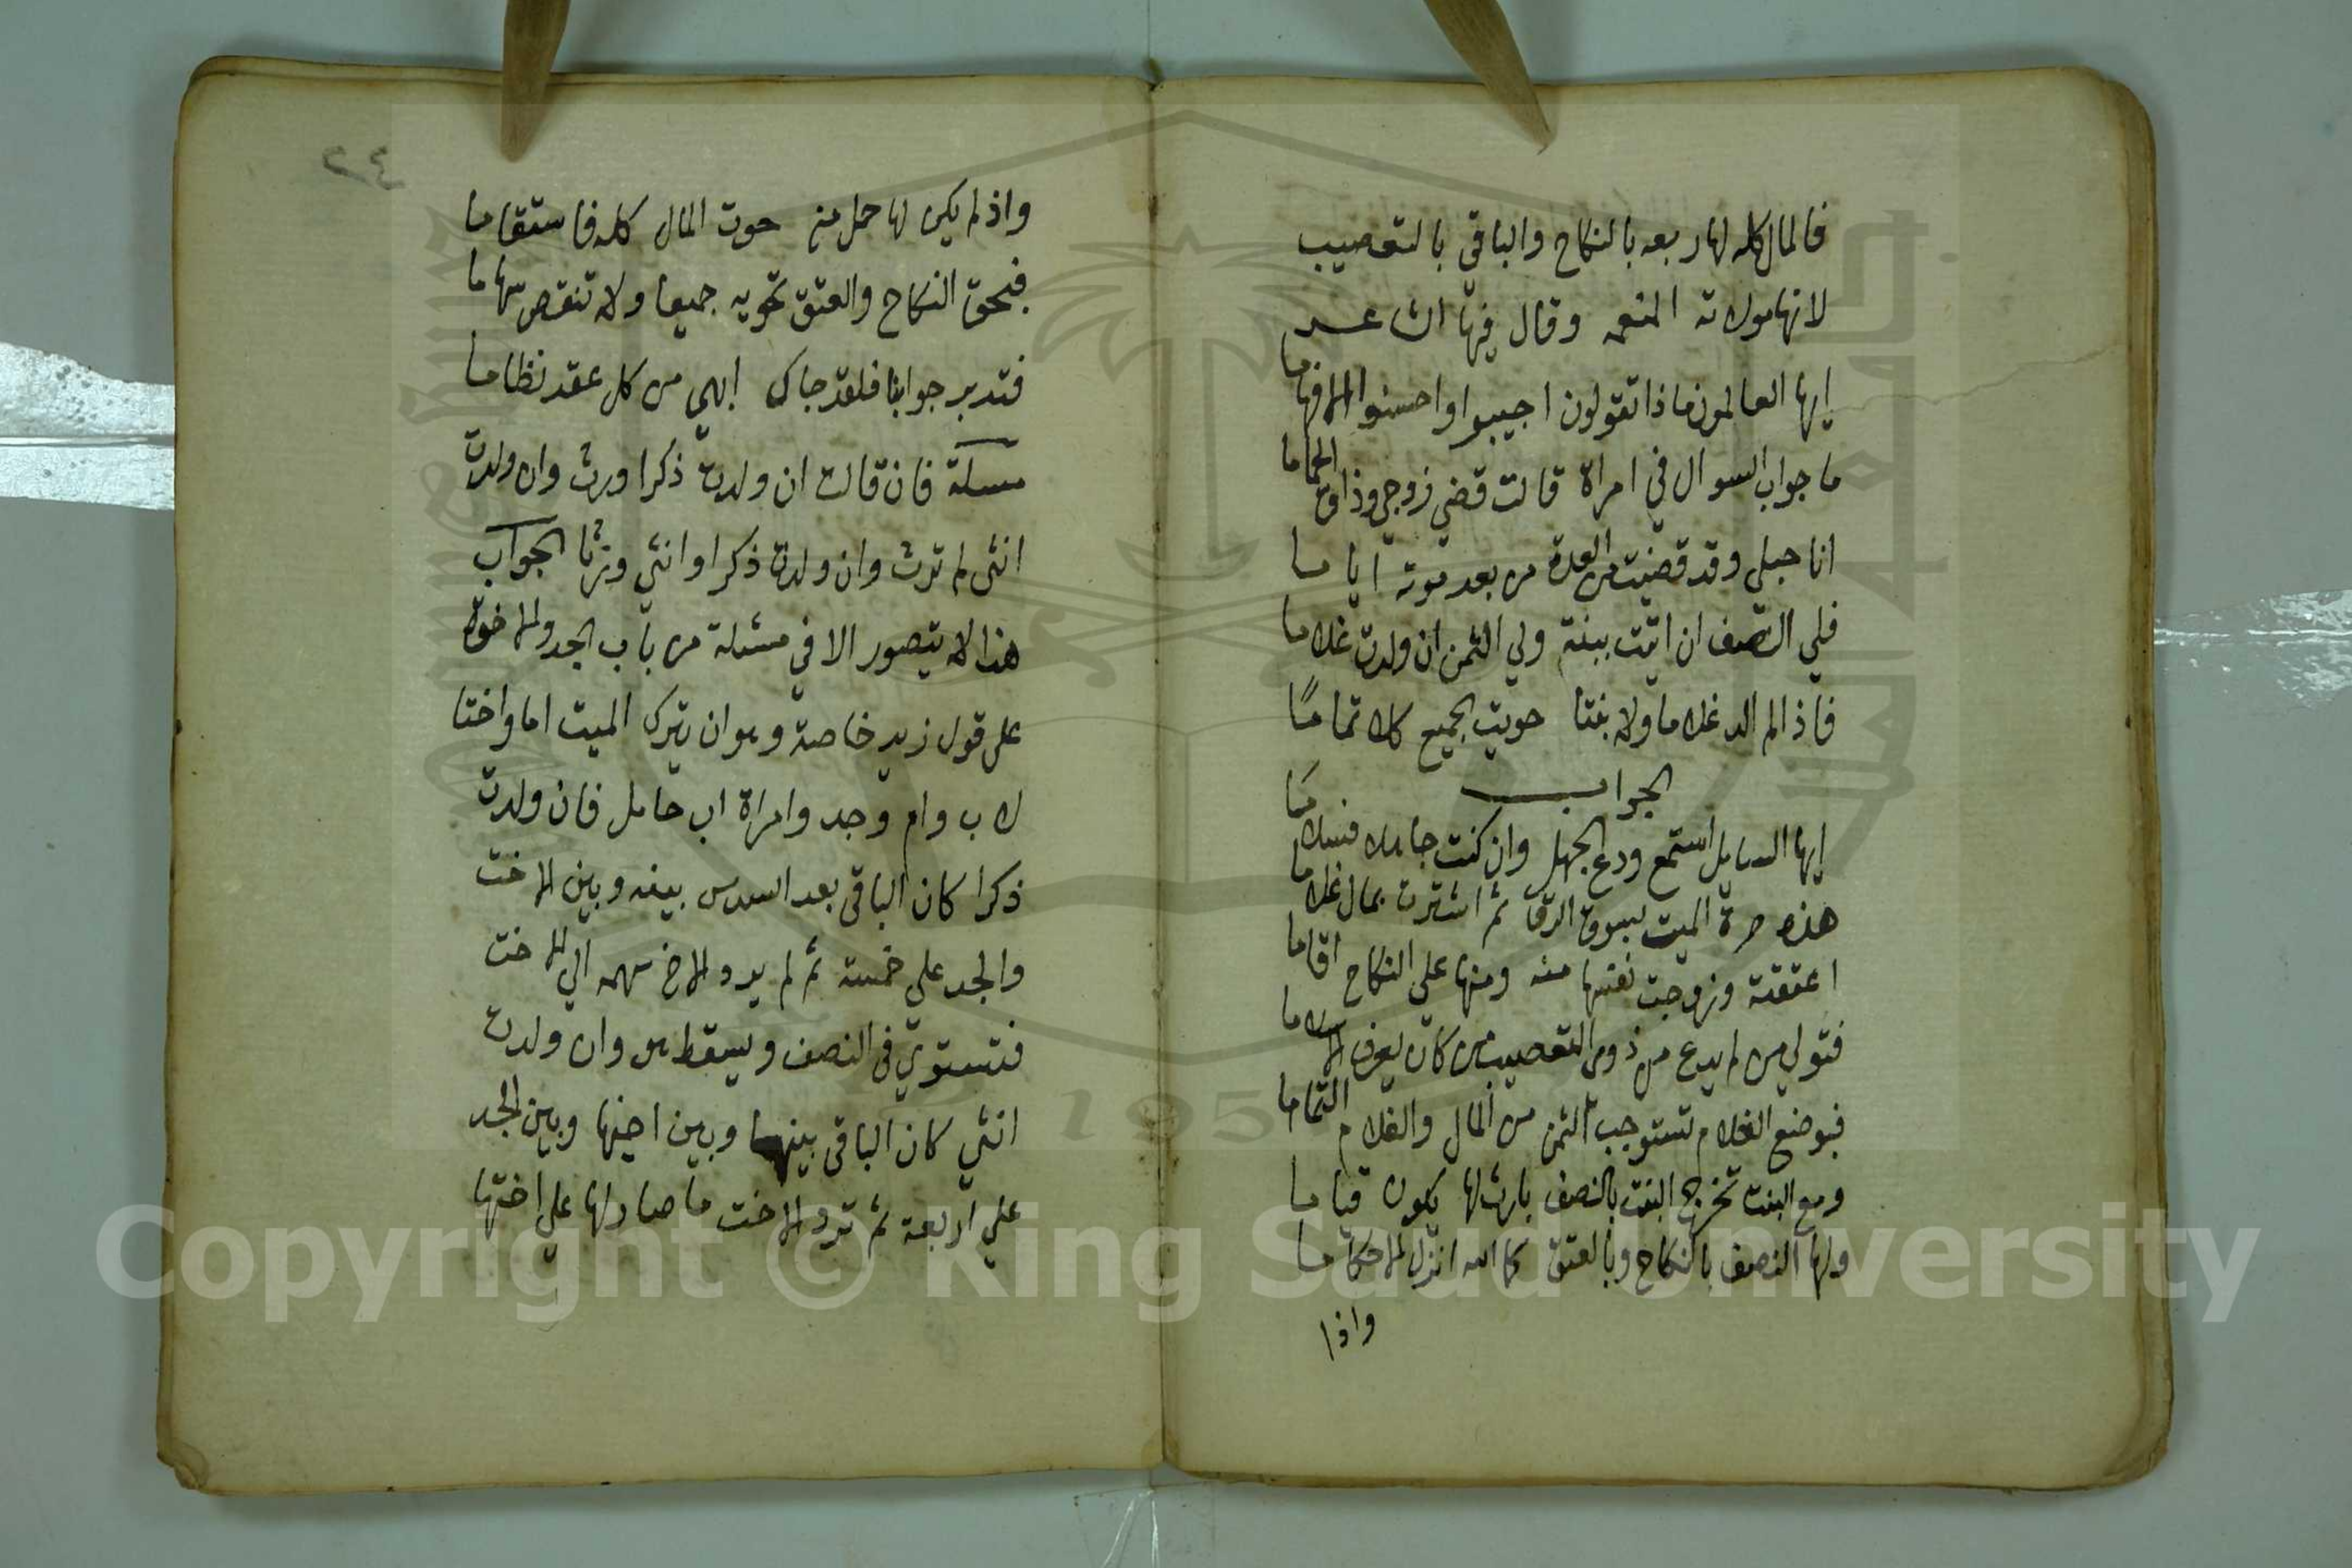 فالمال كله لها ربعه بالنكاح والباقي بالتعصيب
لانها مولاته المنعمه وقال فيها الشاعر
ايها العالمون ماذا تقولون اجيبوا واحسنوا الافهاما
ما جواب السوال في امراة قالت قضي زوجي وذاق الحماما
انا حبلي وقد قضيت من العدة من بعد موته اياما
فلي النصف ان اتيت ببنت ولي الثمن ان ولدت غلاما
فاذا لم الد غلاما ولا بنتا حويت الجميع كلا تماما
الجواب
ايها السايل استمع ودع الجهل وان كنت جاهلا فسلاما
هذه حرة الميت بسوق الرق ثم اشترت بمال غلاما
اعتقته وزوجت نفسها منه ومنها علي النكاح اقاما
فتولي من لم يدع من ذوي التعصيب من كان يعرف الاسلاما
فبوضع الغلام تستوجب الثمن من المال والغلام التماما
ومع البنت تخرج البنت بالنصف بارث لها يكون قياما
ولها النصف بالنكاح وبالعتق كما الله انزل الاحكاما
واذا
٢٤
واذ لم يكن لها حمل منه حوت المال كله فاستقاما
فبحق النكاح والعتق تحويه جميعا ولا تنقص سهاما
فتدبر جوابنا فلقد جاك ابهي من كل عقد نظاما
مسئلة فان قالت ان ولدت ذكرا ورث وان ولدت
انثى لم ترث وان ولدت ذكرا وانثي ورثا الجواب
هذا لا يتصور الا في مسئلة من باب الجد والاخوة
على قول زيد خاصة وهو ان يترك الميت اما واختا
لاب وام وجد وامراة اب حامل فان ولدت
ذكرا كان الباقي بعد السدس بينه وبين الاخت
والجد علي خمسة ثم لم يرد الاخ سهمه الي الاخت
فتستوي في النصف ويسقط هو وان ولدت
انثي كان الباقي بينهما وبين اختها وبين الجد
علي اربعة ثم ترد الاخت ما صار لها علي اختها
Copyright © King Saud University